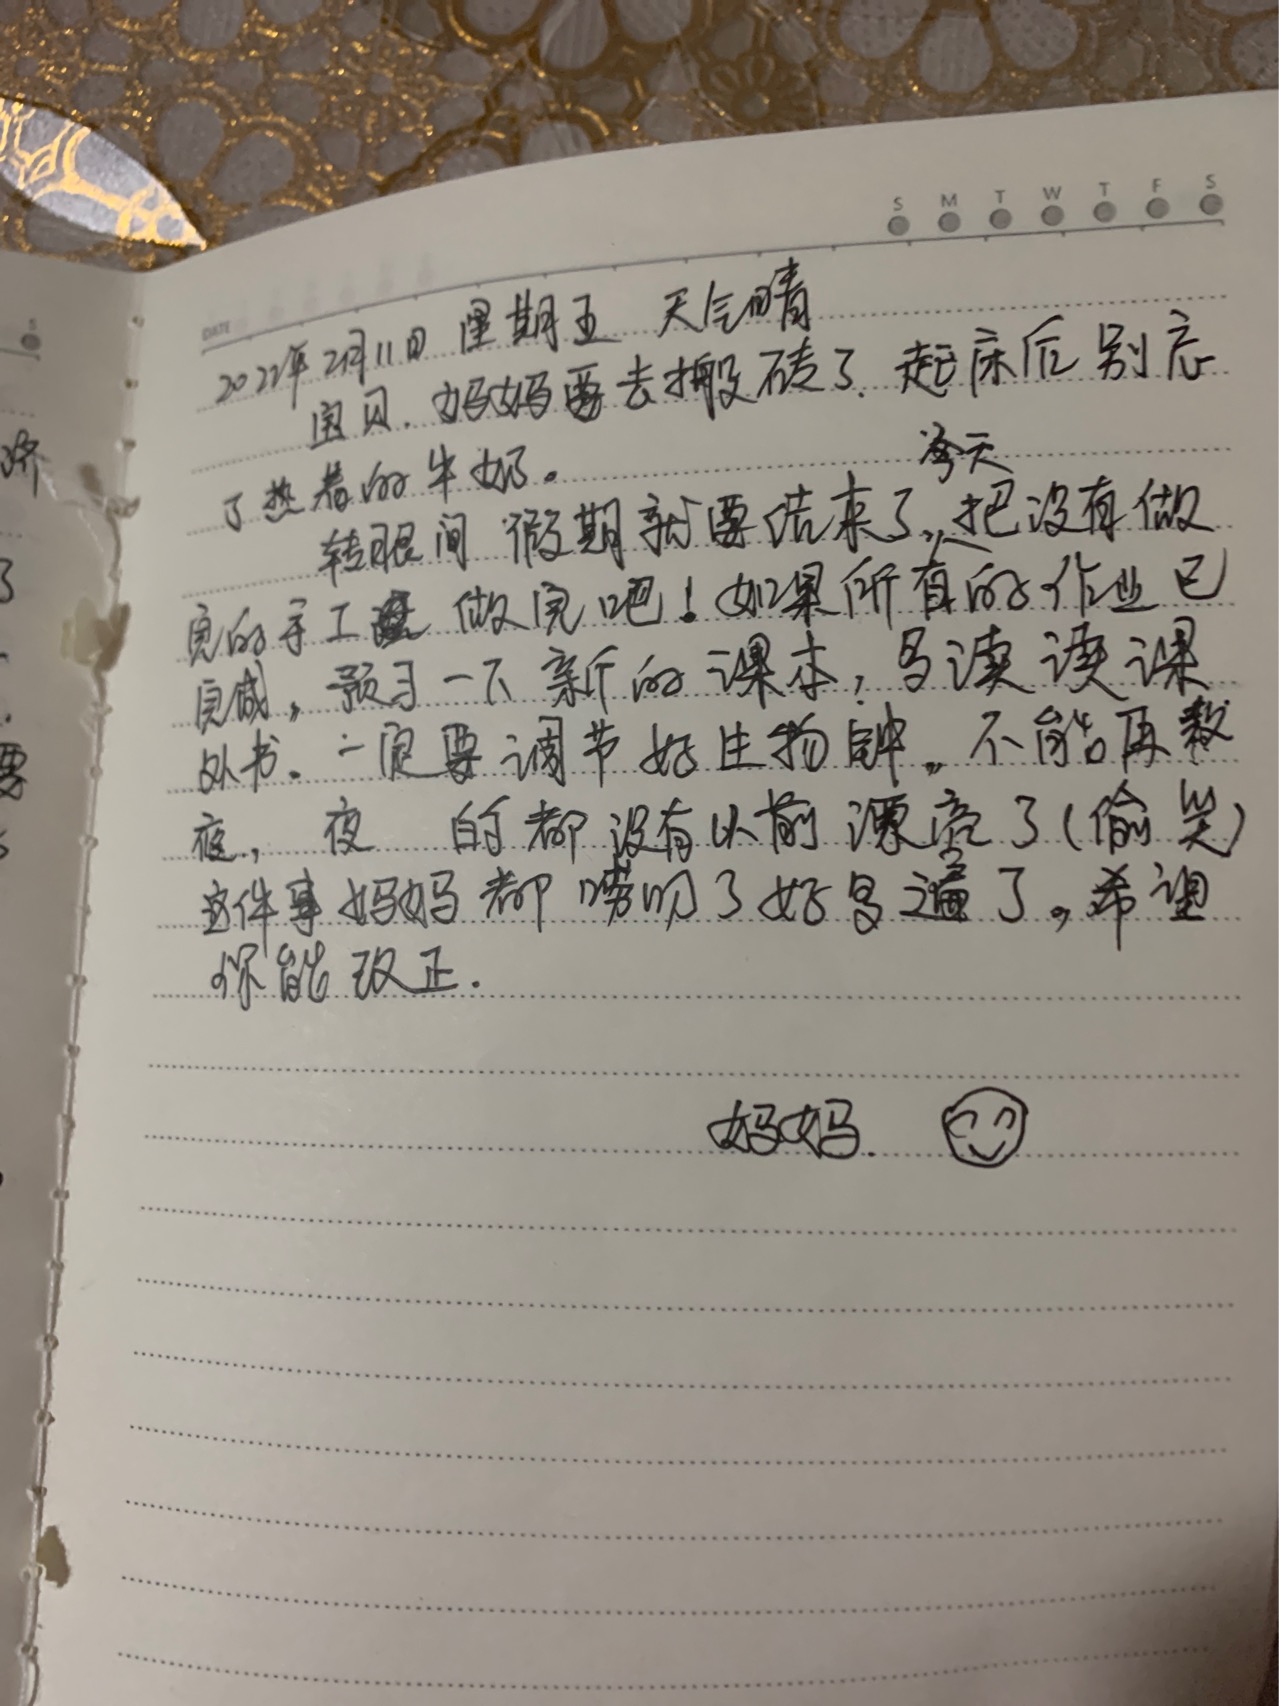 S M T W T F S
DATE
2022年2月11日 星期五 天气晴
宝贝.妈妈要去搬砖了.起床后别忘
了热着的牛奶。
今天
转眼间假期就要结束了,把没有做
完的手工 做完吧!如果所有的作业已
完成,预习一下新的课本,多读读课
外书.一定要调节好生物钟。不能再熬
夜,夜 的都没有以前漂亮了(偷笑)
这件事妈妈都唠叨了好多遍了。希望
你能改正.
妈妈.